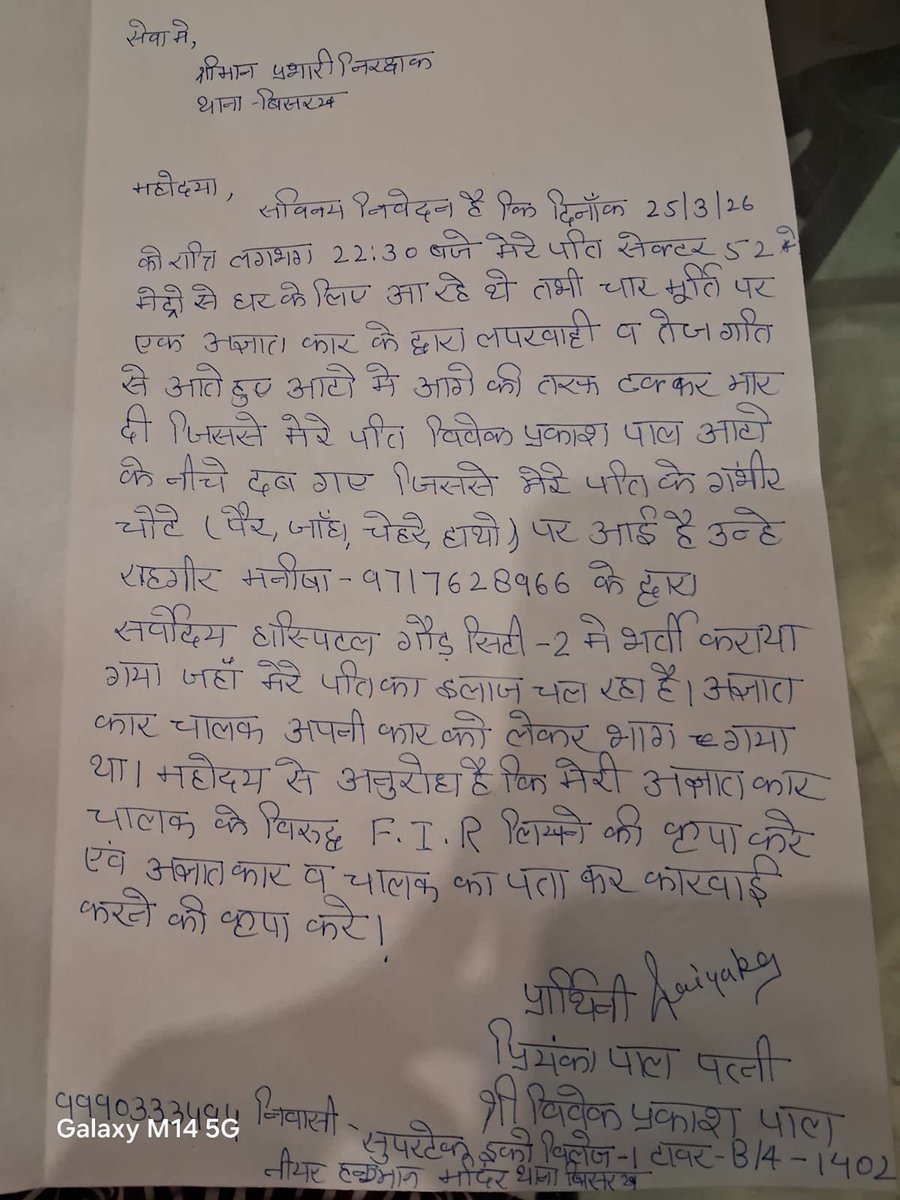 सेवा मे,
श्रीमान प्रभारी निरक्षाक
थाना - बिसरख
महोदया,
सविनय निवेदन है कि दिनाँक 25/3/26
को रात्रि लगभग 22:30 बजे मेरे पति सेक्टर 52 मे
मेट्रो से घर के लिए आ रहे थे तभी चार मूर्ति पर
एक अज्ञात कार के द्वारा लपरवाही व तेज गति
से आते हुए आटो मे आगे की तरफ टक्कर मार
दी जिससे मेरे पति विवेक प्रकाश पाल आटो
के नीचे दब गए जिससे मेरे पति के गंभीर
चोटे (पैर, जाँघ, चेहरे, हाथो) पर आई है उन्हे
राहगीर मनीषा - 9717628966 के द्वारा
सर्वोदय हास्पिटल गौड़ सिटी -2 मे भर्ती कराया
गया जहाँ मेरे पति का इलाज चल रहा है। अज्ञात
कार चालक अपनी कार को लेकर भाग गया
था। महोदय से अनुरोध है कि मेरी अज्ञात कार
चालक के विरुद्ध F.I.R लिखने की कृपा करे
एवं अज्ञात कार व चालक का पता कर कारवाई
करने की कृपा करे।
प्रार्थिनी
प्रियंका पाल पत्नी
श्री विवेक प्रकाश पाल
निवासी - सुपरटेक इको विलेज -1 टावर - B/4 - 1402
नीयर हनुमान मंदिर थाना बिसरख
Galaxy M14 5G